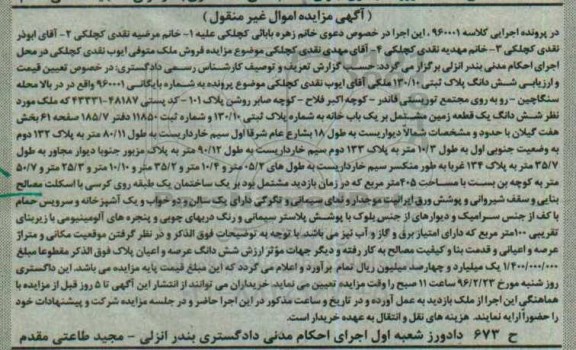 ( آگهی مزایده اموال غیر منقول )
در پرونده اجرایی کلاسه ۹۶۰۰۰۱ ، این اجرا در خصوص دعوی خانم زهره بابائی کچلکی علیه ۱- خانم مرضیه نقدی کچلکی ۲- آقای ابوذر
نقدی کچلکی ۳- خانم مهدیه نقدی کچلکی ۴- آقای مهدی نقدی کچلکی موضوع مزایده فروش ملک متوفی ایوب نقدی کچلکی در محل
اجرای احکام مدنی بندر انزلی برگزار می گردد: حسب گزارش تعریف و توصیف کارشناس رسمی دادگستری: در خصوص تعیین قیمت
و ارزیابی شش دانگ پلاک ثبتی ۱۳۰/۱۰ ملکی آقای ایوب نقدی کچلکی موضوع پرونده به شماره بایگانی ۹۶۰۰۰۱ واقع در در بالا محله
سنگاچین - رو به روی مجتمع توریستی قائدر - کوچه اکبر فلاح - کوچه صابر روشن پلاک ۱۰۱ - کد پستی ۴۸۱۸۷-۴۳۳۳۱ که ملک مورد
نظر شش دانگ یک قطعه زمین مشتمل بر یک باب خانه به شماره پلاک ثبتی ۱۳۰/۱۰ و شماره ثبت ۱۱۸۵۰ دفتر ۱۸۵/۷ صفحه ۶۱ بخش
هفت گیلان با حدود و مشخصات شمالاً دیواریست به طول ۱۸ بشارع عام شرقا اول سیم خارداریست به طول ۸۰/۱۱ متر به پلاک ۱۳۲ دوم
به وضعیت جنوبی اول به طول ۱۰/۳ متر به پلاک ۱۳۳ دوم سیم خارداریست به طول ۹۰/۱۲ متر به پلاک مزبور جنوبا دیوار مجاور به طول
۳۵/۷ متر به پلاک ۱۳۴ غربا به طور منکسر سیم خارداریست به طول های ۰۵/۲ متر و ۱۰/۴ متر و ۳۵/۲ متر و ۱۰/۱۰ متر و ۳۵/۳ متر و ۵۰/۷
متر به کوچه بن بست با مساحت ۴۰۵ متر مربع که در زمان بازدید مشتمل بود بر یک ساختمان یک طبقه روی کرسی با اسکلت مصالح
بنایی و سقف شیروانی و پوشش ورق ایرانیت موجدار و نمای سیمانی و تگرگی دارای یک سالن و دو خواب و یک آشپزخانه و سرویس حمام
با کف از جنس سرامیک و دیوارهای از جنس بلوک با پوشش پلاستر سیمانی و رنگ دربهای چوبی و پنجره های آلومینیومی با زیربنای
تقریبی ۱۰۰متر مربع که دارای امتیاز برق و گاز و آب نیز می باشد. با توجه به توضیحات فوق الذکر و در نظر گرفتن موقعیت مکانی و متراژ
عرصه و اعیانی و قدمت بنا و کیفیت مصالح به کار رفته و دیگر جهات مؤثر ارزش شش دانگ عرصه و اعیان پلاک فوق الذکر مقطوعا مبلغ
۱/۴۰۰/۰۰۰/۰۰۰ یک میلیارد و چهارصد میلیون ریال تمام برآورد و اعلام می گردد که این مبلغ قیمت پایه مزایده می باشد. این دادگستری
روز شنبه مورخ ۹۶/۲/۲۳ ساعت ۱۱ صبح را وقت مزایده تعیین می نماید. خریداران می توانند از انتشار این آگهی تا ۵ روز قبل از مزایده با
هماهنگی این اجرا از ملک بازدید به عمل آورده و در تاریخ و ساعت مذکور در این اجرا حاضر و در جلسه مزایده شرکت و پیشنهادات خود
را حضوراً ارایه نمایند. هزینه های نقل و انتقال به عهده خریدار است.
ح ۶۷۳ دادورز شعبه اول اجرای احکام مدنی دادگستری بندر انزلی - مجید طاعتی مقدم